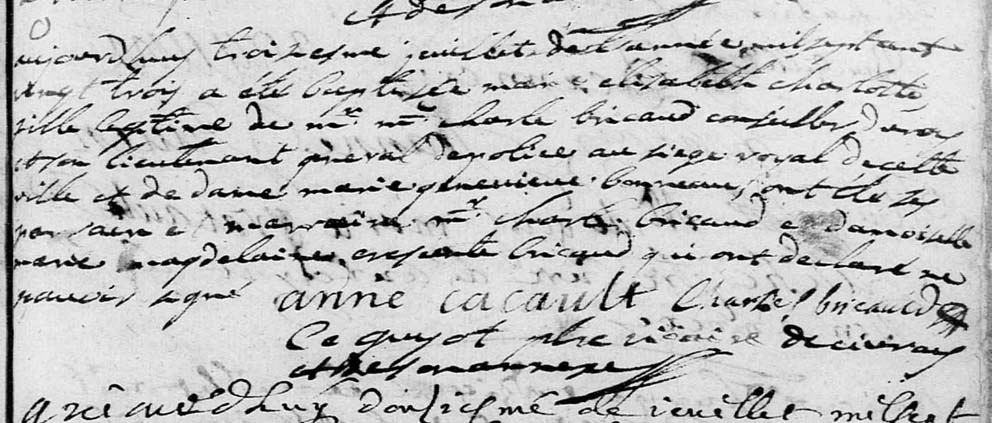 aujourdhuy troiziesme juillet de l'année mil sept cent
vingt trois a été baptisée marie élisabeth charlotte
fille legitime de mr. mr. charle bricaud conseiller du roy
et son lieutenant general de police au siege royal de cette
ville et de dame marie genevieve bonneau, ont été ses
parrain et marraine mr. charle bricaud et damoiselle
marie magdelaine bricaud qui ont declaré ne
pouvoir signé anne cacault Charles bricaud
Ce guyot pbre vicaire de civray
et de
aujourdhuy de juillet mil sept